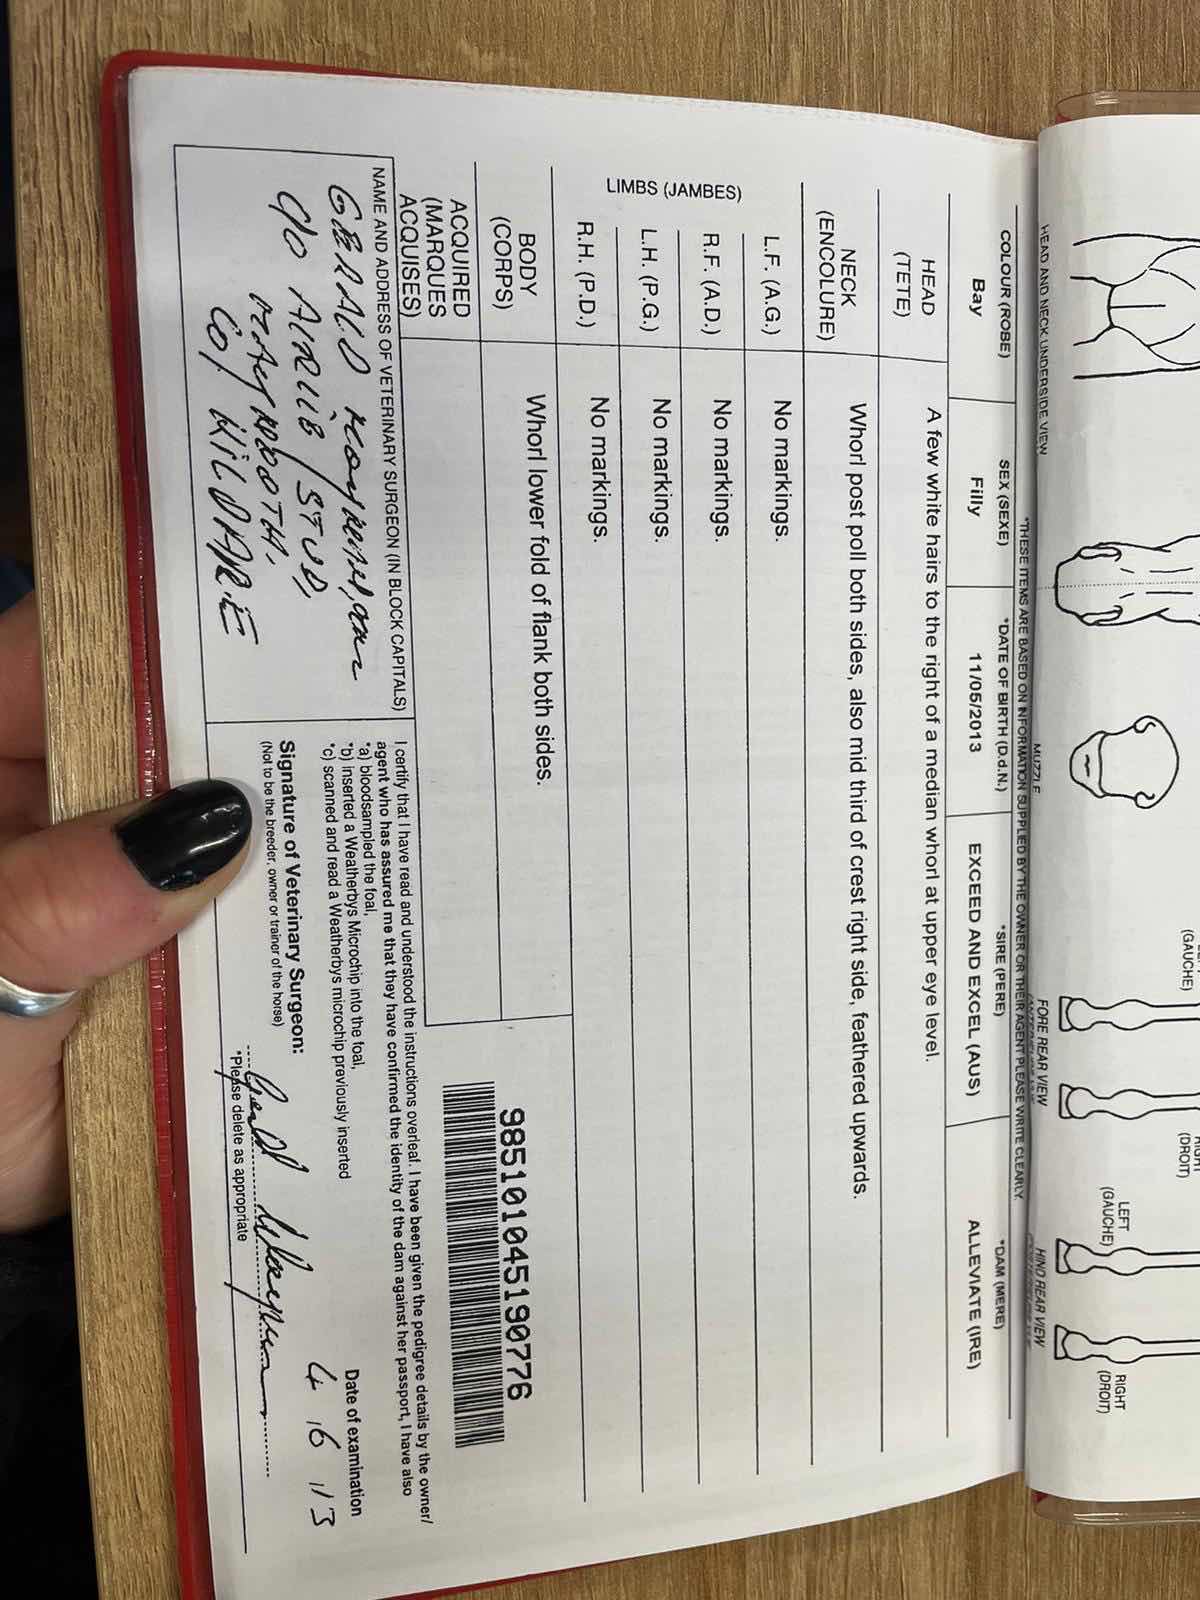 HEAD AND NECK UNDERSIDE VIEW
MUZZLE
FORE REAR VIEW
HIND REAR VIEW
(GAUCHE)
(DROIT)
LEFT
(GAUCHE)
RIGHT
(DROIT)
*THESE ITEMS ARE BASED ON INFORMATION SUPPLIED BY THE OWNER OR THEIR AGENT PLEASE WRITE CLEARLY.
COLOUR (ROBE) SEX (SEXE) *DATE OF BIRTH (D.d.N.) *SIRE (PERE) *DAM (MERE)
Bay Filly 11/05/2013 EXCEED AND EXCEL (AUS) ALLEVIATE (IRE)
HEAD
(TETE)
A few white hairs to the right of a median whorl at upper eye level.
NECK
(ENCOLURE)
Whorl post poll both sides, also mid third of crest right side, feathered upwards.
LIMBS (JAMBES)
L.F. (A.G.) No markings.
R.F. (A.D.) No markings.
L.H. (P.G.) No markings.
R.H. (P.D.) No markings.
BODY
(CORPS)
Whorl lower fold of flank both sides.
ACQUIRED
(MARQUES
ACQUISES)
985101045190776
NAME AND ADDRESS OF VETERINARY SURGEON (IN BLOCK CAPITALS)
GERALD
c/o AIRLIE STUD,
MAYNOOTH,
CO. KILDARE
I certify that I have read and understood the instructions overleaf. I have been given the pedigree details by the owner/
agent who has assured me that they have confirmed the identity of the dam against her passport, I have also
*a) bloodsampled the foal,
*b) inserted a Weatherbys Microchip into the foal,
*c) scanned and read a Weatherbys microchip previously inserted
Date of examination
4 16 113
Signature of Veterinary Surgeon:
(Not to be the breeder, owner or trainer of the horse)
*Please delete as appropriate